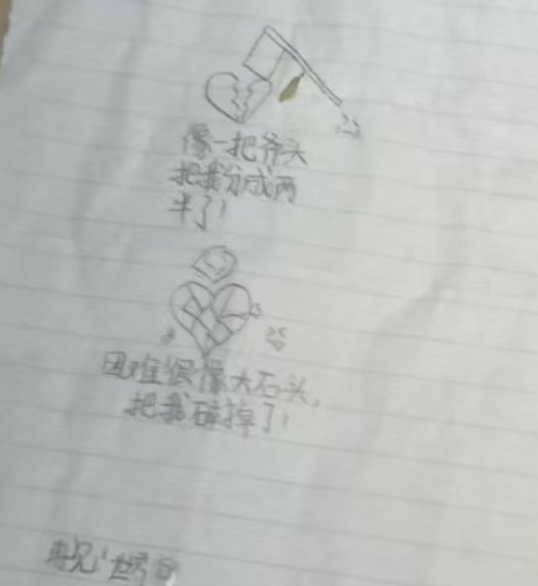 像一把斧头
把我分成两
半了!
困难像大石头,
把我碎掉了!
再见!世界